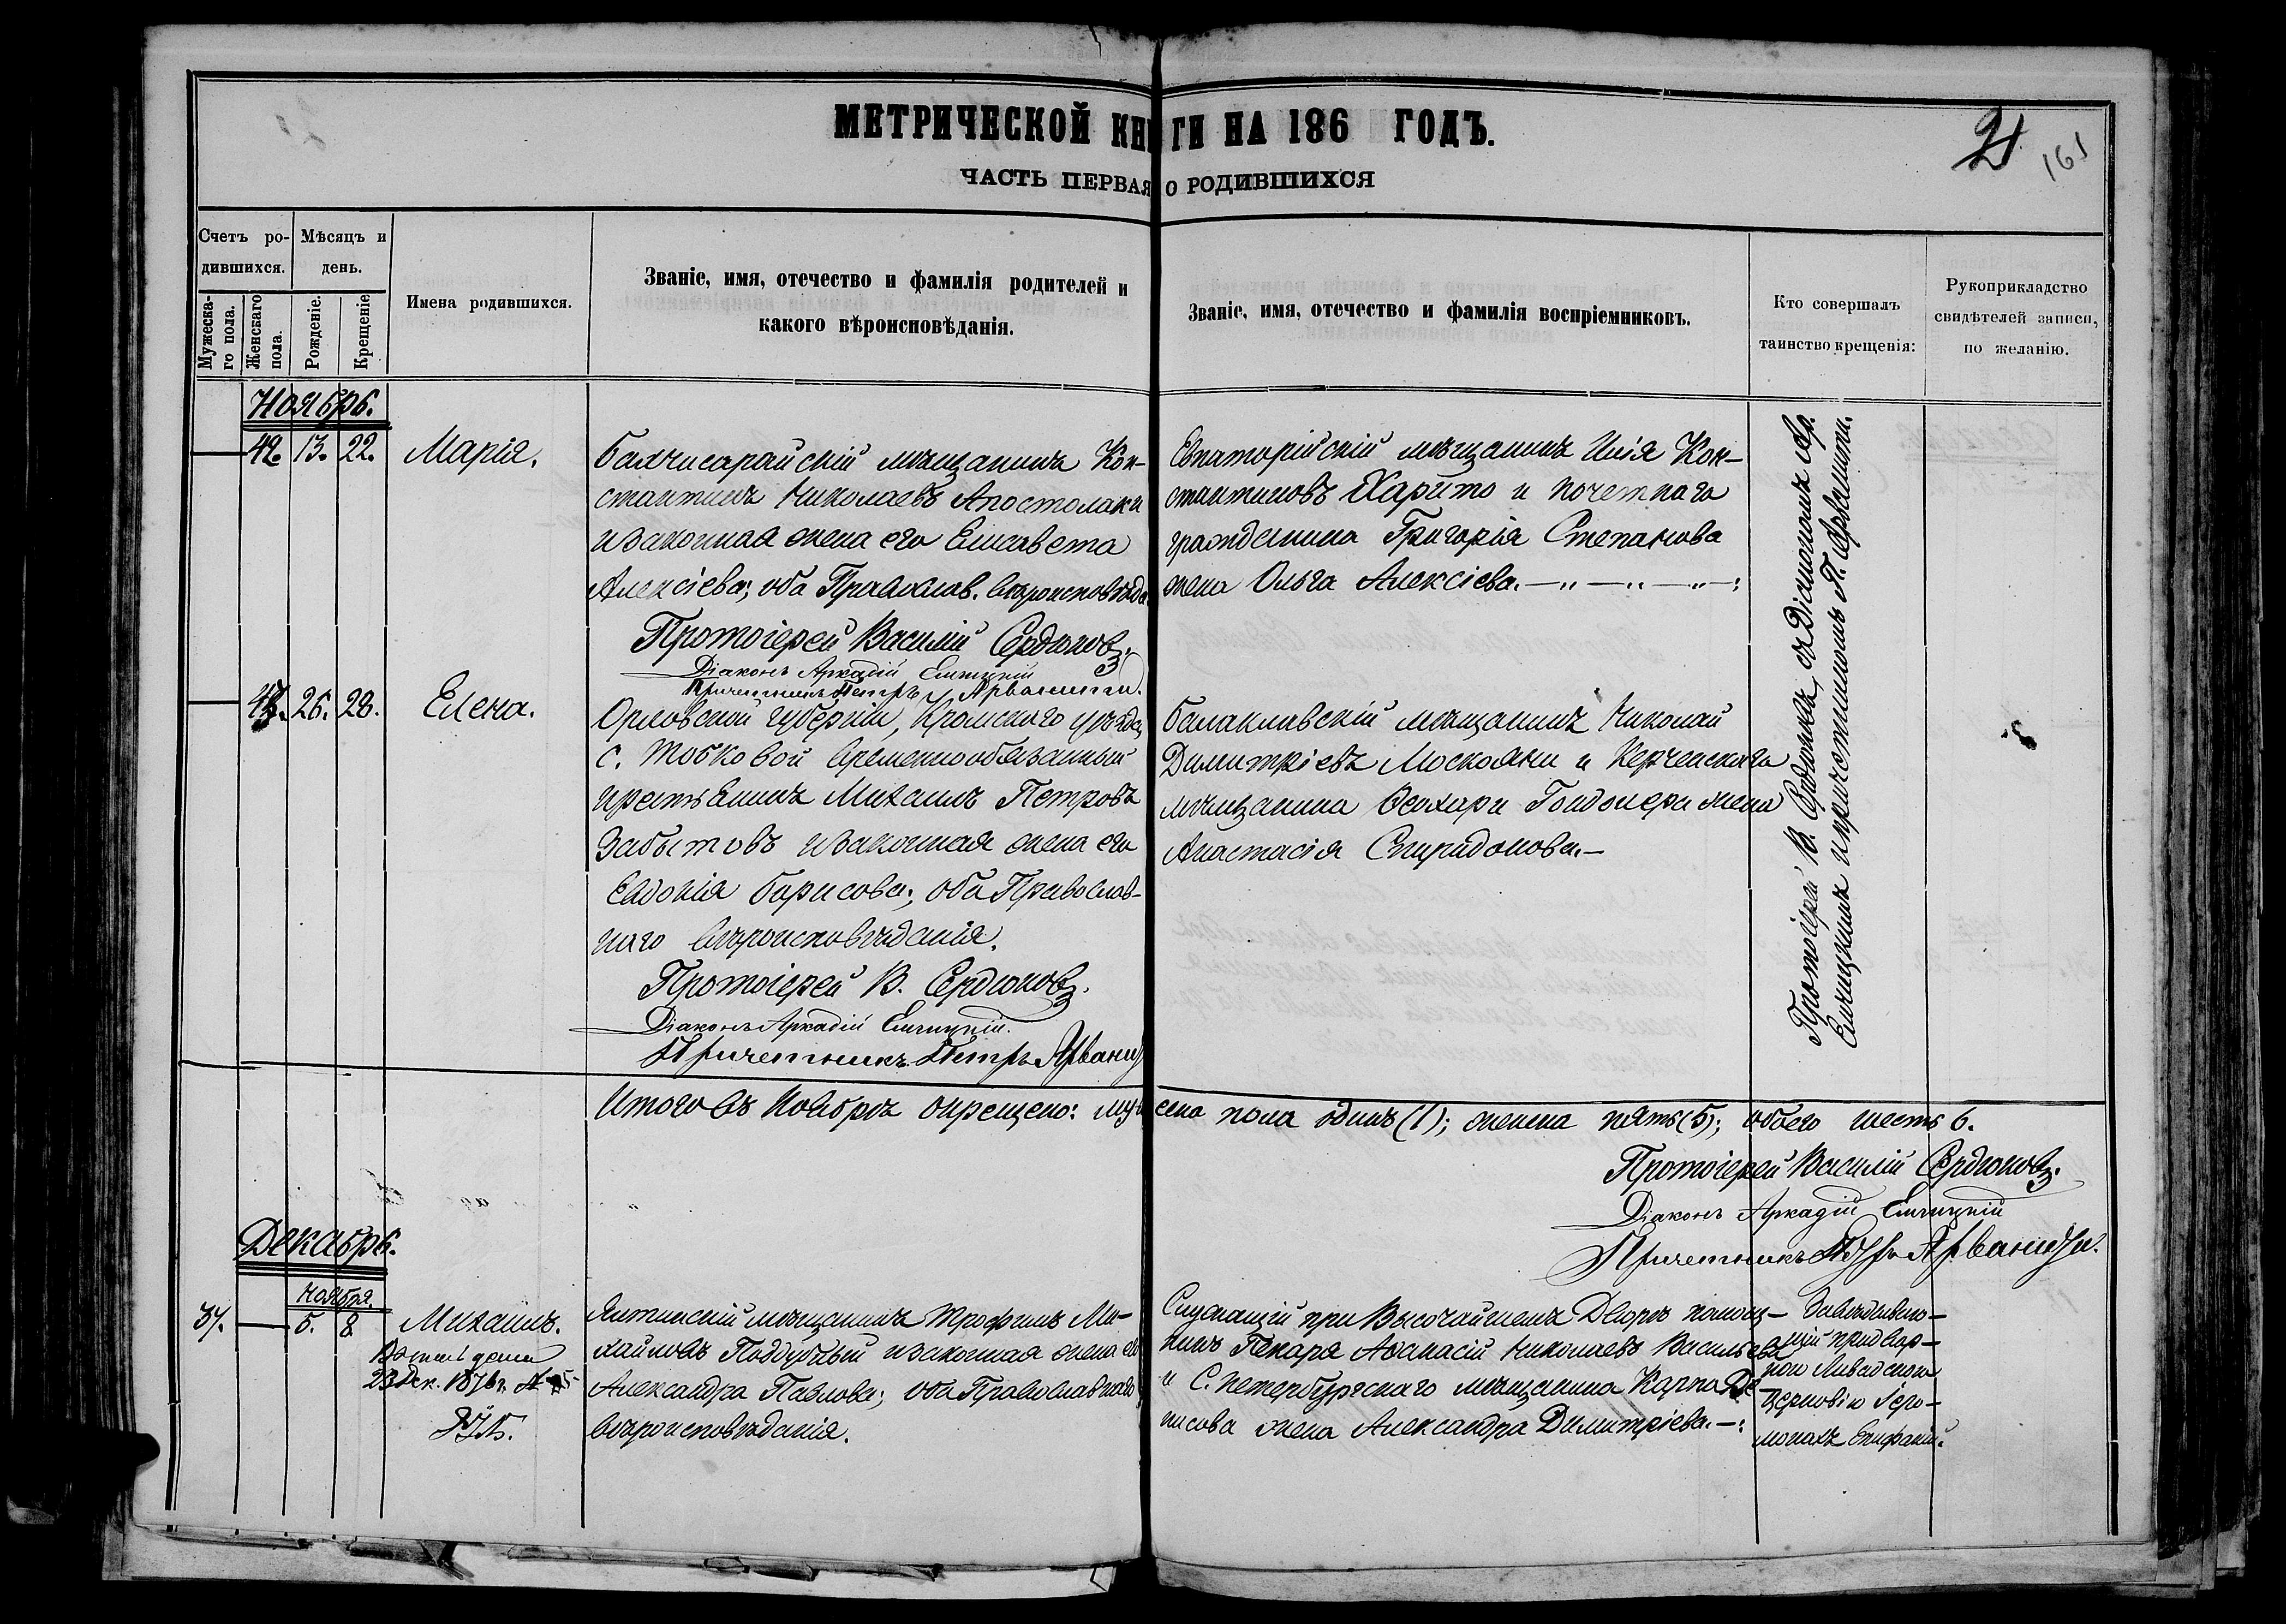 МЕТРИЧЕСКОЙ КНИГИ НА 186 ГОДЪ.
21
161
ЧАСТЬ ПЕРВАЯ О РОДИВШИХСЯ
Счетъ ро-
дившихся.
Мужеска-
го пола.
Женскаго
пола.
Мѣсяцъ и
день.
Рожденіе.
Крещеніе
Имена родившихся.
Званіе, имя, отечество и фамилія родителей и
какого вѣроисповѣданія.
Званіе, имя, отечество и фамилія воспріемниковъ.
Кто совершалъ
таинство крещенія:
Рукоприкладство
свидѣтелей записи,
по желанію.
Ноябрь.
42. 13. 22. Марія.
Бахчисарайскій мѣщанинъ Кон-
стантинъ Николаевъ Апостолаки
и законная жена его Елисавета
Алексіева; оба Православ. вѣроисповѣда
Протоіерей Василій Сердюковъ.
Діаконъ Аркадій Енчицкій
Причетникъ Петръ Арванити.
Евпаторійскій мѣщанинъ Илія Кон-
стантиновъ Харито и почетнаго
гражданина Григорія Степанова
жена Ольга Алексіева.
Протоіерей В. Сердюковъ, съ Діакономъ Ар.
Енчицкимъ и причетникомъ П. Арванити.
43. 26. 28. Елена.
Орловской губерніи, Кромскаго уѣзда,
с. временнообязанный
крестьянинъ Михаилъ Петровъ
Забытовъ и законная жена его
Евдокія Борисова; оба Православ-
наго вѣроисповѣданія.
Протоіерей В. Сердюковъ.
Діаконъ Аркадій Енчицкій.
Причетникъ Петръ Арвани
Балаклавскій мѣщанинъ Николай
Димитріевъ и Керченскаго
мѣщанина жена
Анастасія Спиридонова.
Итого въ Ноябрѣ окрещено: мужеска пола одинъ (1); женска пять (5); обоего шесть 6.
Протоіерей Василій Сердюковъ.
Діаконъ Аркадій Енчицкій
Причетникъ Петръ Арванити.
Декабрь.
Ноября.
37. 5. 8 Михаилъ.
23 Дек. 1876 г.
Ялтинскій мѣщанинъ Трофимъ Ми-
хайловъ Поддубный и законная жена его
Александра Павлова; оба Православнаго
вѣроисповѣданія.
Служащій при Высочайшемъ Дворѣ помощ-
никъ Пекаря Аѳанасій Николаевъ Васильевъ
и С. Петербургскаго мѣщанина Карпа Де-
нисова жена Александра Димитріева.
Завѣдываю-
щій придвор-
ной Ливадскою
церковію Іеро-
монахъ Епифаній.